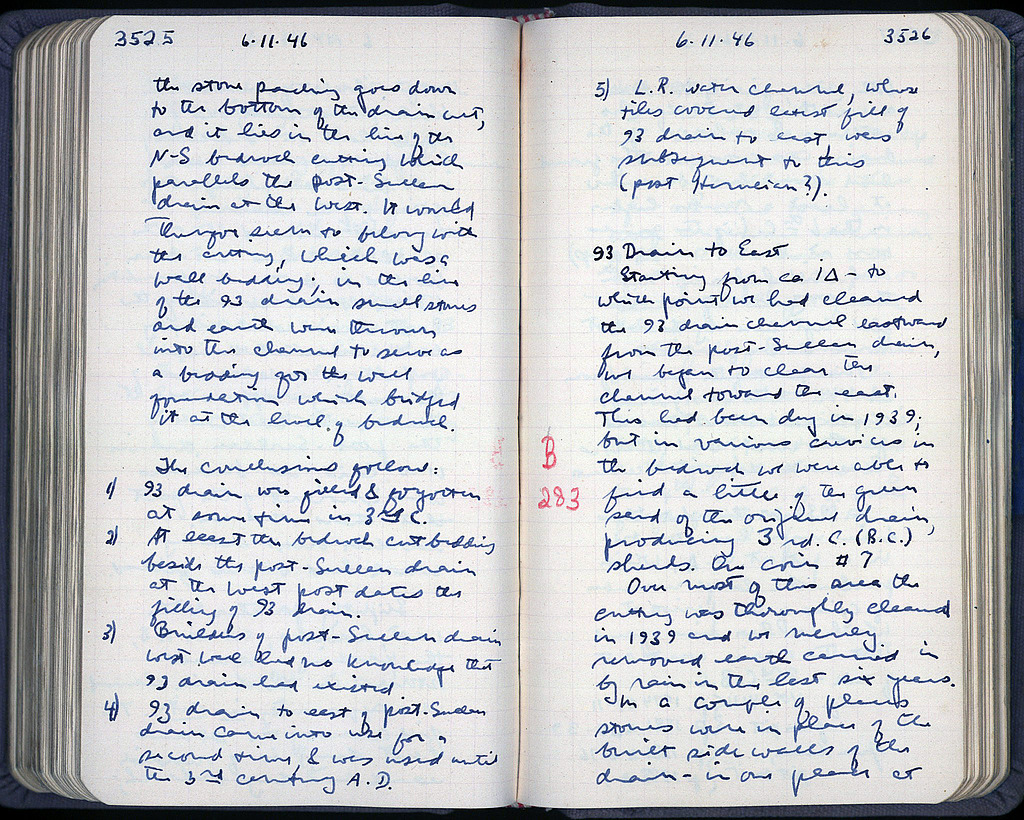 3525 6·11·46
the stone packing goes down
to the bottom of the drain cut,
and it lies in the line of the
N-S bedrock cutting which
parallels the post-Sullan
drain at the west. It would
therefore seem to belong with
the cutting, which was a
wall bedding; in the line
of the 93 drain small stones
and earth were thrown
into the channel to serve as
a bedding for the wall
foundation which bridged
it at the level of bedrock.
The conclusions follow:
1) 93 drain was filled & forgotten
at some time in 3rd C.
2) At least the bedrock cut bedding
beside the post-Sullan drain
at the west post dates the
filling of 93 drain.
3) Builders of post-Sullan drain
west wall had no knowledge that
93 drain had existed.
4) 93 drain to east of post-Sullan
drain came into use for a
second time & was used until
the 3rd century A.D.
6·11·46 3526
5) L.R. water channel, whose
tiles covered latest fill of
93 drain to east, was
subsequent to this
(post Herulian?).
93 Drain to East
Starting from ca 1Δ - to
which point we had cleaned
the 93 drain channel eastward
from the post-Sullan drain,
we began to clear the
channel toward the east.
This had been dug in 1939;
but in various crevices in
the bedrock we were able to
find a little of the green
sand of the original drain,
producing 3rd. C. (B.C.)
sherds. One coin #7
Over most of this area the
cutting was thoroughly cleaned
in 1939 and we merely
removed earth carried in
by rain in the last six years.
In a couple of places
stones were in place of the
built side walls of the
drain - in one place at
B
283